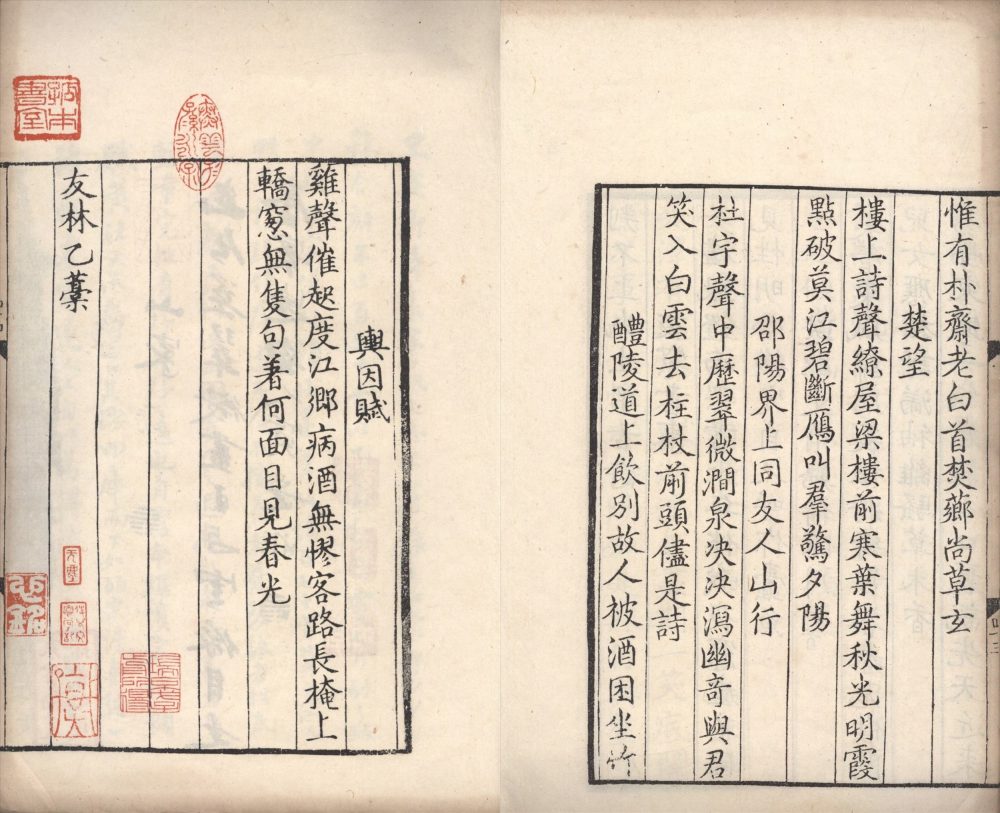 惟有朴齋老白首焚薌尚草玄
楚望
樓上詩聲繚屋梁樓前寒葉舞秋光明霞
點破莫江碧斷鴈叫羣驚夕陽
邵陽界上同友人山行
杜宇聲中歷翠微澗泉决决瀉幽奇與君
笑入白雲去柱杖前頭儘是詩
醴陵道上飲別故人被酒困坐竹
輿因賦
雞聲催起度江鄉病酒無憀客路長掩上
轎窻無隻句著何面目見春光
友林乙藁
孤本書室